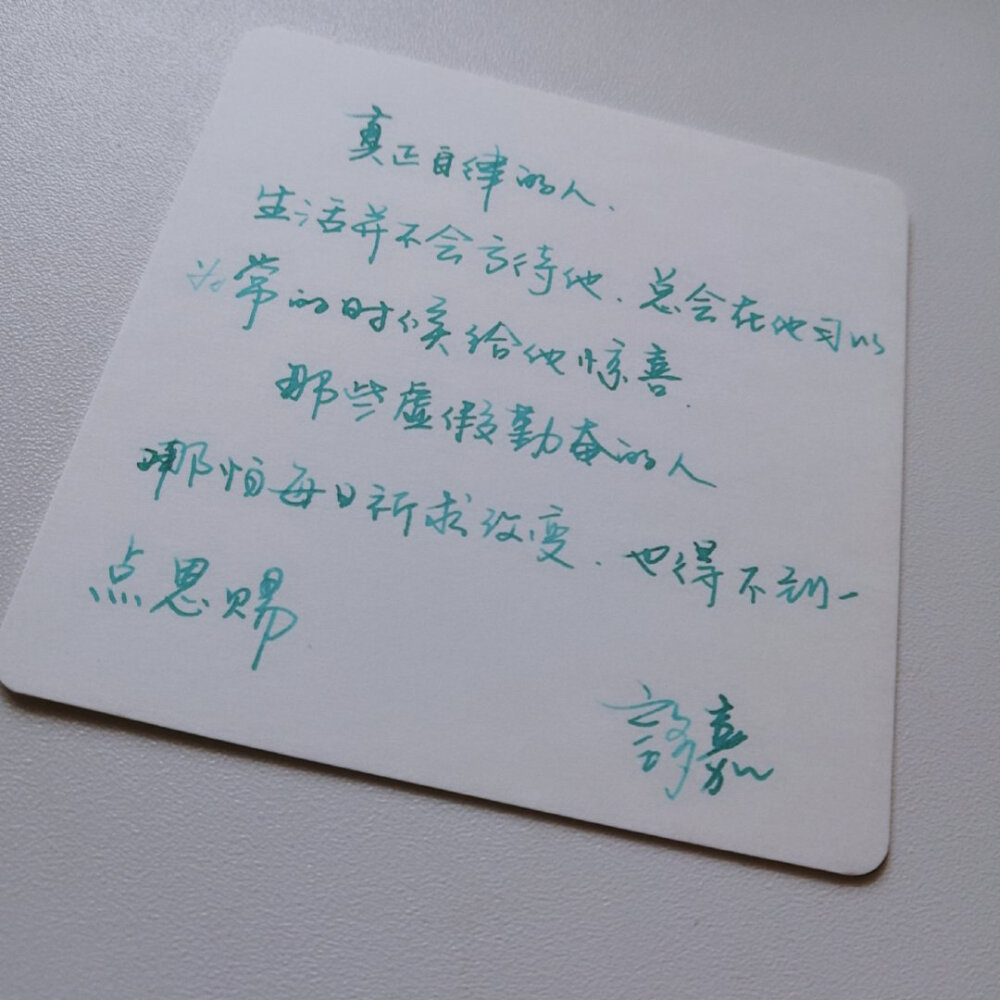 真正自律的人.
生活并不会亏待他.总会在他习以
为常的时候给他惊喜.
那些虚假勤奋的人
哪怕每日祈求改变.也得不到一
点恩赐
嘉